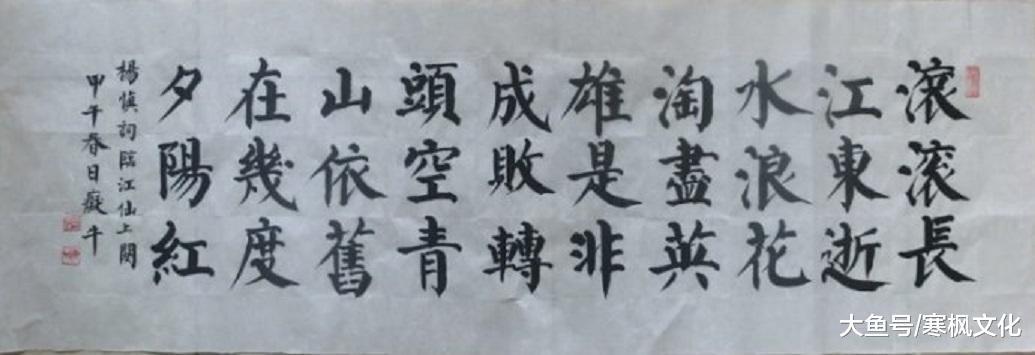 滚滚長
江東逝
水浪花
淘盡英
雄是非
成敗轉
頭空青
山依舊
在幾度
夕陽紅
楊慎詞臨江仙上闋
甲午春日癡牛
大鱼号/寒枫文化